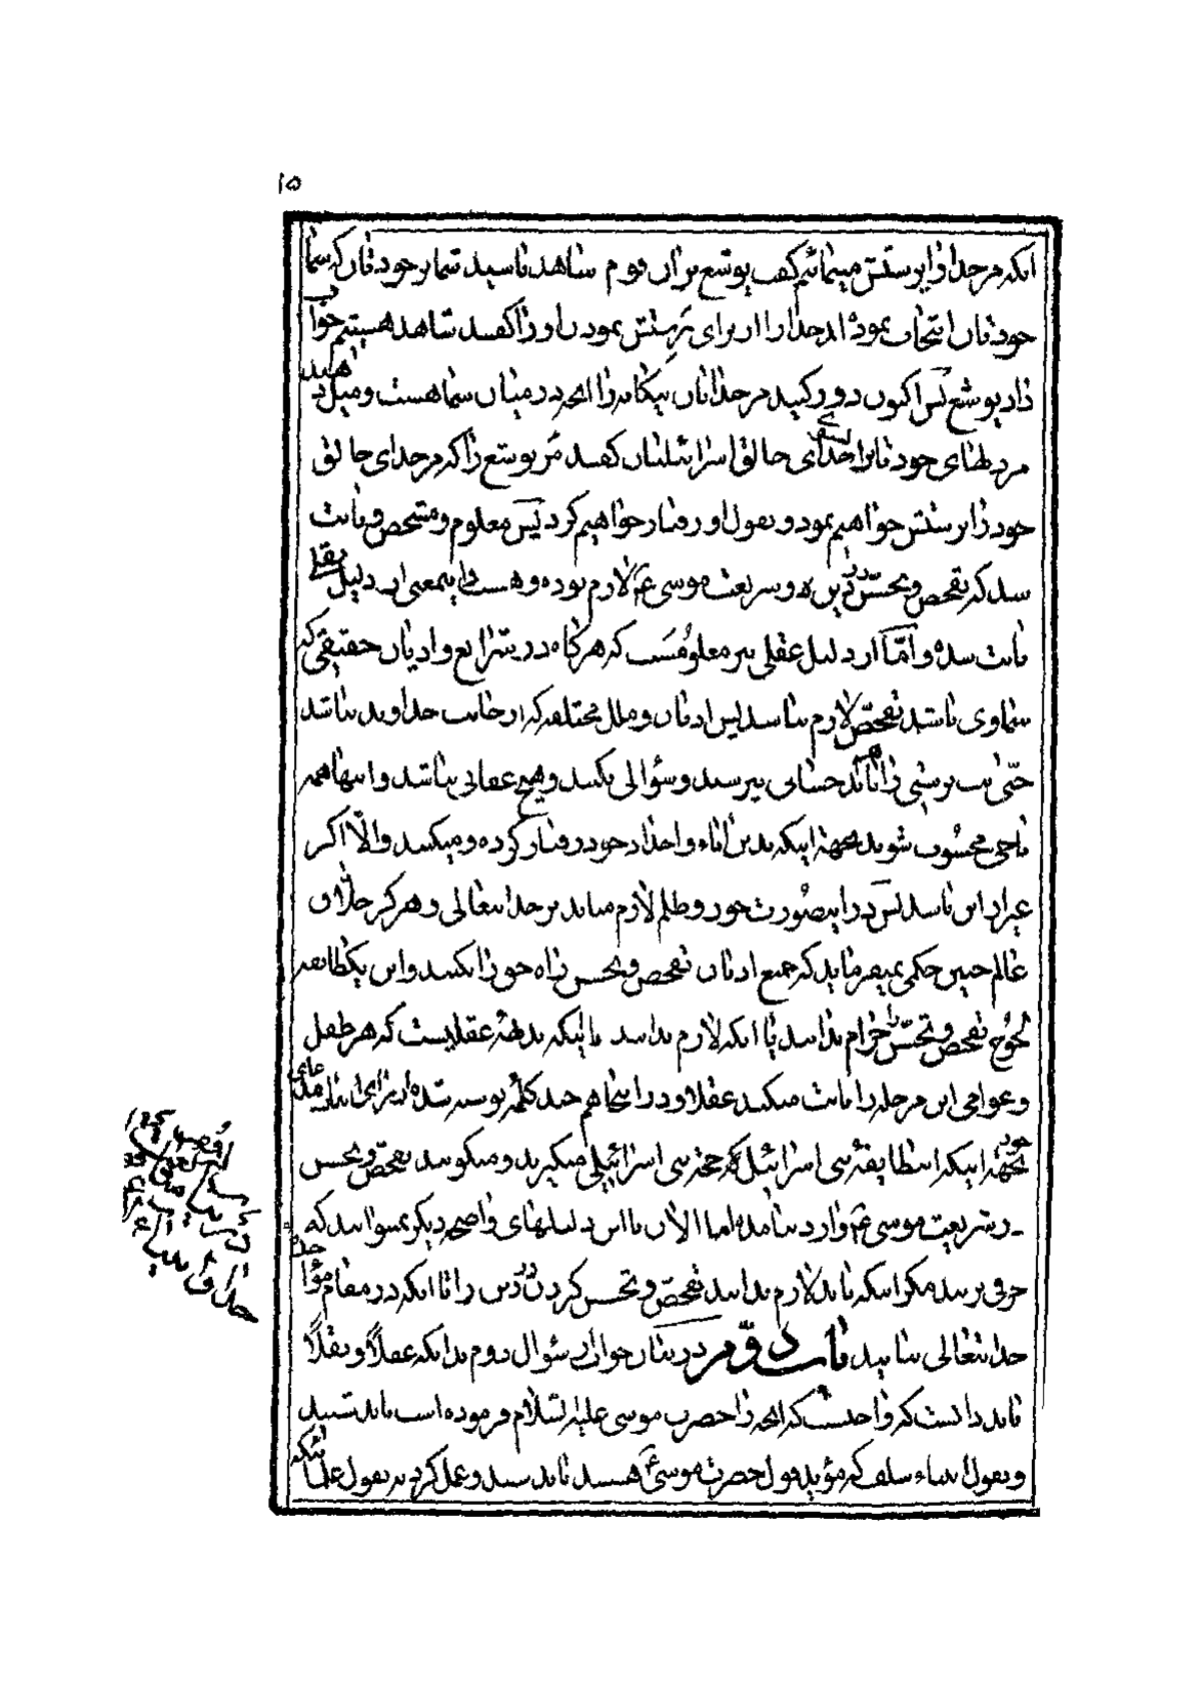 ۱۵
انکه مر خدا را پرستش مینمائیم گفت یوشع بران قوم شاهد باشید شما بر خودتان که شما
خودتان انتخاب نموده اید خدا را از برای پرستش نمودن او را گفتند شاهد هستیم جواب
داد یوشع پس اکنون دور کنید مر خدایان بیکانه را انچه در میان شما هست و میل دهید
مر دلهای خودتانرا بخدای خالق اسرائیلتان گفتند مر یوشع را که مر خدای خالق
خود را پرستش خواهیم نمود و بقول او رفتار خواهیم کرد پس معلوم و مشخص و ثابت
شد که تفحص و تجسّس در دین و شریعت موسی ع م لازم بوده و هست و این معنی از دلیل نقلی
ثابت شده و امّا از دلیل عقلی نیز معلومست که هرکاه در شرایع و ادیان حقیقی که
سماوی باشد تفحصّ لازم نباشد پس ادیان و ملل مختلفه که از جانب خداوند نباشد
حتّی بت پرستی را هم باید حسابی نپرسند و سؤالی نکنند و هیچ عقابی نباشد و اینها همه
ناجی محسوب شوند بجهة اینکه بدین اباء و اجداد خود رفتار کرده و میکنند والّا اکر
غیر از این باشد پس در اینصورت جور و ظلم لازم میاید بر خدایتعالی و هرکز خلاق
عالم چنین حکمی نمیفرماید که جمیع ادیان تفحص و تجسس راه حق را نکنند و این یکطایفه
لجوج تفحص و تجسّس را حرام بدانند یا انکه لازم ندانند با اینکه بدیهۀ عقلیست که هر طفل
و عوامی این مرحله را ثابت میکند عقلا و در اینجا هم چند کلمۀ نوشته شده از برای اتمام مدعای
خود بجهة اینکه انطایفۀ بنی اسرائیل که حجة بنی اسرائیلی میکیرند و میکویند تفحصّ و تجسس
در شریعت موسی ع م وارد نیامده اما الان با این دلیلهای واضح دیکر نمیتوانند که
حرفی بزنند مکر اینکه باید لازم بدانند تفحصّ و تجسس کردن در دین را تا انکه در مقام مؤاخذۀ
خدایتعالی نیایند باب دوّم در بیان جواب سؤال دوم بدانکه عقلاً و نقلاً
باید دانست که واجبست که انچه را حضرت موسی علیه السّلام فرموده است باید شنید
و بقول انبیاء سلف که مؤید قول حضرت موسی ع هستند باید شنید و عمل کرد نه بقول علمائیکه